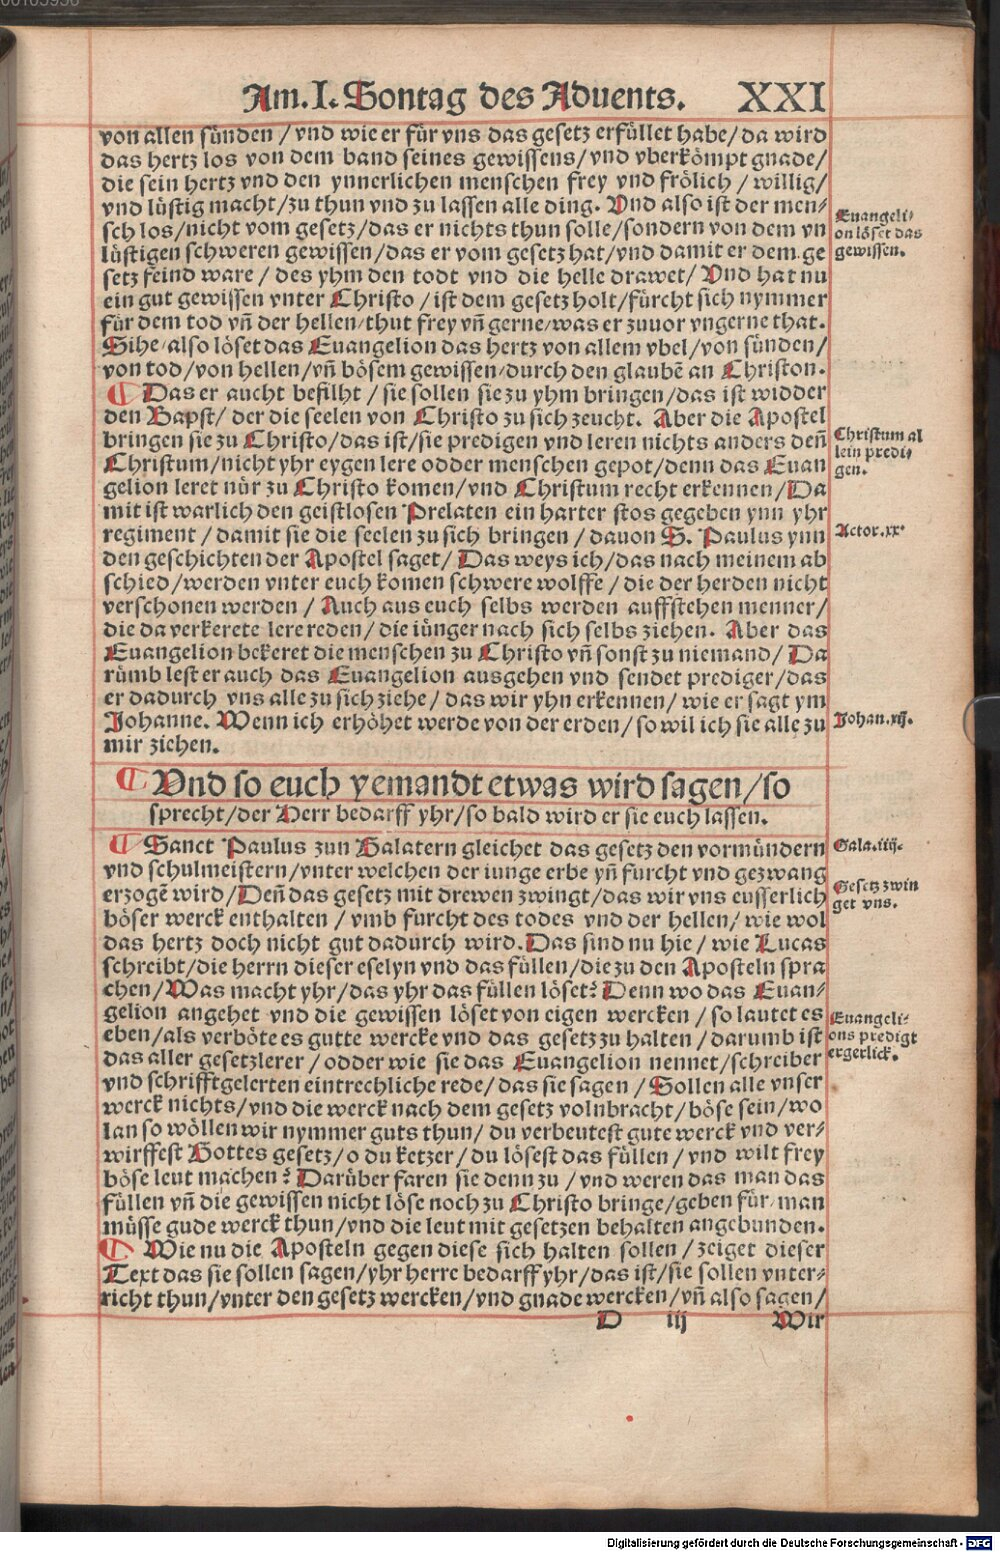 Am.I. Sontag des Aduents. XXI
von allen sünden / vnd wie er für vns das gesetz erfüllet habe / da wird
das hertz los von dem band seines gewissens / vnd vberkömpt gnade /
die sein hertz vnd den ynnerlichen menschen frey vnd frölich / willig /
vnd lüstig macht / zu thun vnd zu lassen alle ding. Vnd also ist der men-
sch los / nicht vom gesetz / das er nichts thun solle / sondern von dem vn
lüstigen schweren gewissen / das er vom gesetz hat / vnd damit er dem ge
setz feind ware / des yhm den todt vnd die helle drawet / Vnd hat nu
ein gut gewissen vnter Christo / ist dem gesetz holt / fürcht sich nymmer
für dem tod vñ der hellen / thut frey vñ gerne / was er zuuor vngerne that.
Sihe / also löset das Euangelion das hertz von allem vbel / von sünden /
von tod / von hellen / vñ bösem gewissen / durch den glaubẽ an Christon.
Euangeli-
on löset das
gewissen.
¶ Das er aucht befilht / sie sollen sie zu yhm bringen / das ist widder
den Bapst / der die seelen von Christo zu sich zeucht. Aber die Apostel
bringen sie zu Christo / das ist / sie predigen vnd leren nichts anders deñ
Christum / nicht yhr eygen lere odder menschen gepot / denn das Euan
gelion leret nür zu Christo komen / vnd Christum recht erkennen / Da
mit ist warlich den geistlosen Prelaten ein harter stos gegeben ynn yhr
regiment / damit sie die seelen zu sich bringen / dauon S. Paulus ynn
den geschichten der Apostel saget / Das weys ich / das nach meinem ab
schied / werden vnter euch komen schwere wolffe / die der herden nicht
verschonen werden / Auch aus euch selbs werden auffstehen menner /
die da verkerete lere reden / die iünger nach sich selbs ziehen. Aber das
Euangelion bekeret die menschen zu Christo vñ sonst zu niemand / Da
rümb lest er auch das Euangelion ausgehen vnd sendet prediger / das
er dadurch vns alle zu sich ziehe / das wir yhn erkennen / wie er sagt ym
Johanne. Wenn ich erhöhet werde von der erden / so wil ich sie alle zu
mir ziehen.
Christum al
lein predi-
gen.
Actor.xx.
Johan.xij.
¶ Vnd so euch yemandt etwas wird sagen / so
sprecht / der Herr bedarff yhr / so bald wird er sie euch lassen.
¶ Sanct Paulus zun Galatern gleichet das gesetz den vormündern
vnd schulmeistern / vnter welchen der iunge erbe yñ furcht vnd gezwang
erzogẽ wird / Deñ das gesetz mit drewen zwingt / das wir vns eusserlich
böser werck enthalten / vmb furcht des todes vnd der hellen / wie wol
das hertz doch nicht gut dadurch wird. Das sind nu hie / wie Lucas
schreibt / die herrn dieser eselyn vnd das füllen / die zu den Aposteln spra
chen / Was macht yhr / das yhr das füllen löset? Denn wo das Euan-
gelion angehet vnd die gewissen löset von eigen wercken / so lautet es
eben / als verböte es gutte wercke vnd das gesetz zu halten / darumb ist
das aller gesetzlerer / odder wie sie das Euangelion nennet / schreiber
vnd schrifftgelerten eintrechliche rede / das sie sagen / Sollen alle vnser
werck nichts / vnd die werck nach dem gesetz volnbracht / böse sein / wo
lan so wöllen wir nymmer guts thun / du verbeutest gute werck vnd ver-
wirffest Gottes gesetz / o du ketzer / du lösest das füllen / vnd wilt frey
böse leut machen? Darüber faren sie denn zu / vnd weren das man das
füllen vñ die gewissen nicht löse noch zu Christo bringe / geben für / man
müsse gude werck thun / vnd die leut mit gesetzen behalten angebunden.
Gala.iiij.
Gesetz zwin
get vns.
Euangeli-
ons predigt
ergerlick.
¶ Wie nu die Aposteln gegen diese sich halten sollen / zeiget dieser
Text das sie sollen sagen / yhr herre bedarff yhr / das ist / sie sollen vnter-
richt thun / vnter den gesetz wercken / vnd gnade wercken / vñ also sagen /
D iij Wir
Digitalisierung gefördert durch die Deutsche Forschungsgemeinschaft - DFG